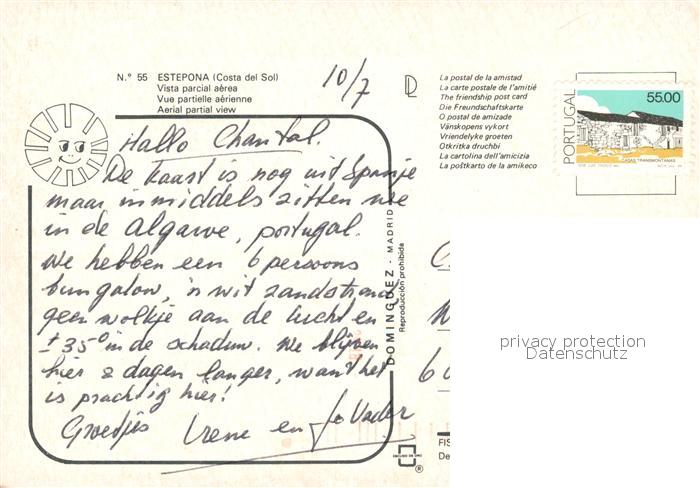 N.° 55 ESTEPONA (Costa del Sol)
Vista parcial aérea
Vue partielle aérienne
Aerial partial view
10/7
La postal de la amistad
La carte postale de l'amitié
The friendship post card
Die Freundschaftskarte
O postal de amizade
Vänskopens vykort
Vriendelyke groeten
Otkritka druchbi
La cartolina dell'amicizia
La poŝtkarto de la amikeco
PORTUGAL
55.00
CASAS TRANSMONTANAS
Hallo Chantal.
De kaart is nog uit Spanje
maar inmiddels zitten we
in de Algarve, portugal.
We hebben een 6 persoons
bungalow, 'n wit zandstrand
geen wolkje aan de lucht en
± 35° in de schaduw. We blijven
hier 2 dagen langer, want het
is prachtig hier!
Groetjes Irene en Jo Vader
DOMINGUEZ - MADRID
Reproducción prohibida
privacy protection
Datenschutz
FIS
De
®